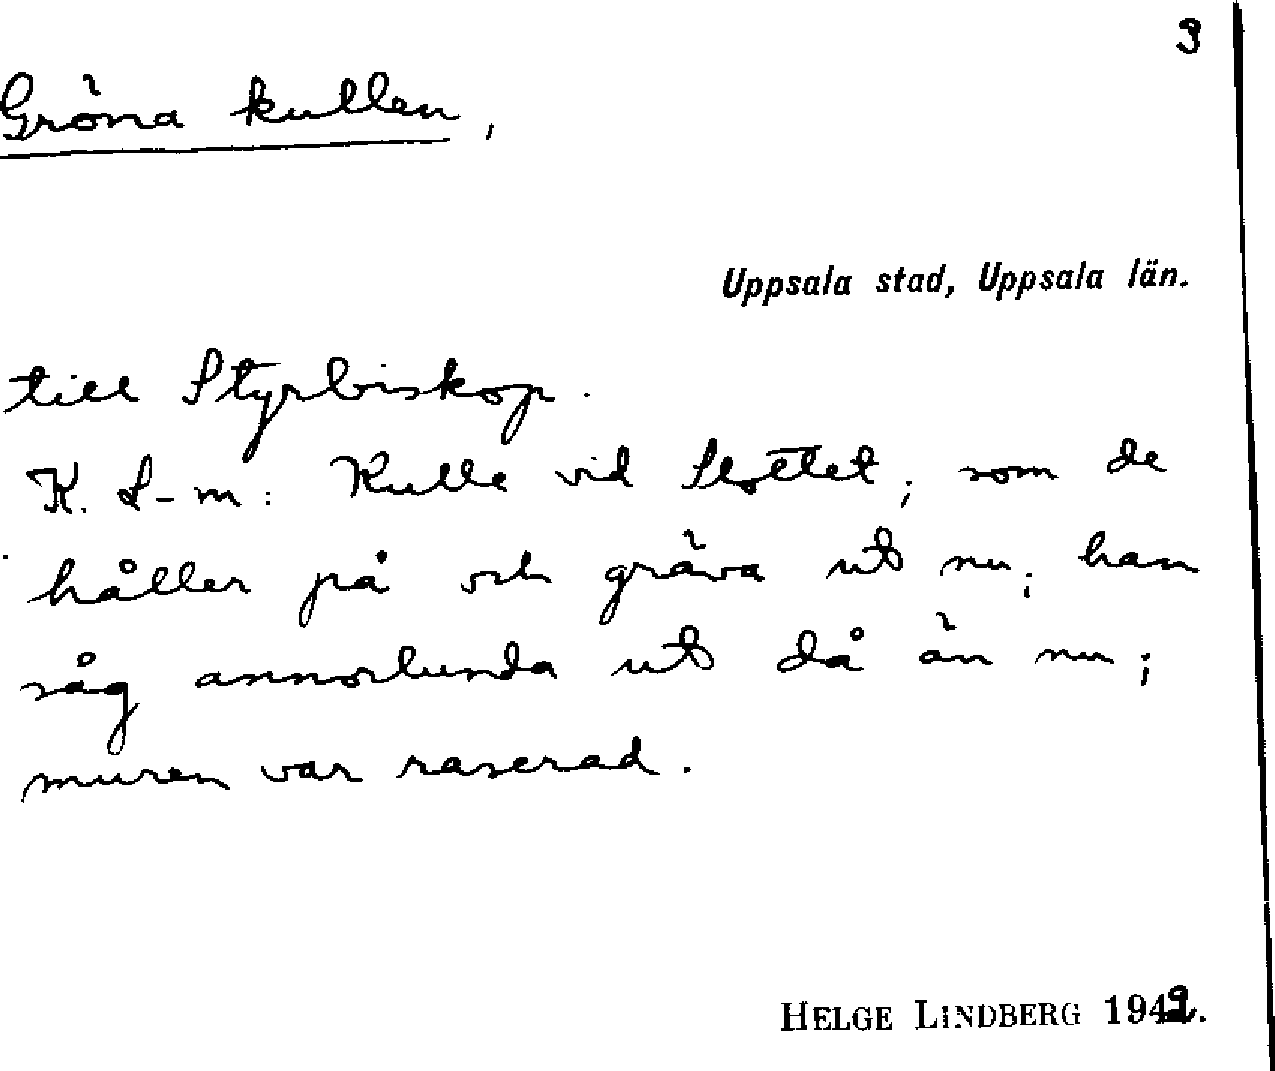 3
Gröna kullen,
Uppsala stad, Uppsala län.
till Styrbiskop.
K. L-m: Kulle vid Slottet, som de
håller på och gräva ut nu; han
såg annorlunda ut då än nu;
muren var raserad.
HELGE LINDBERG 1949.